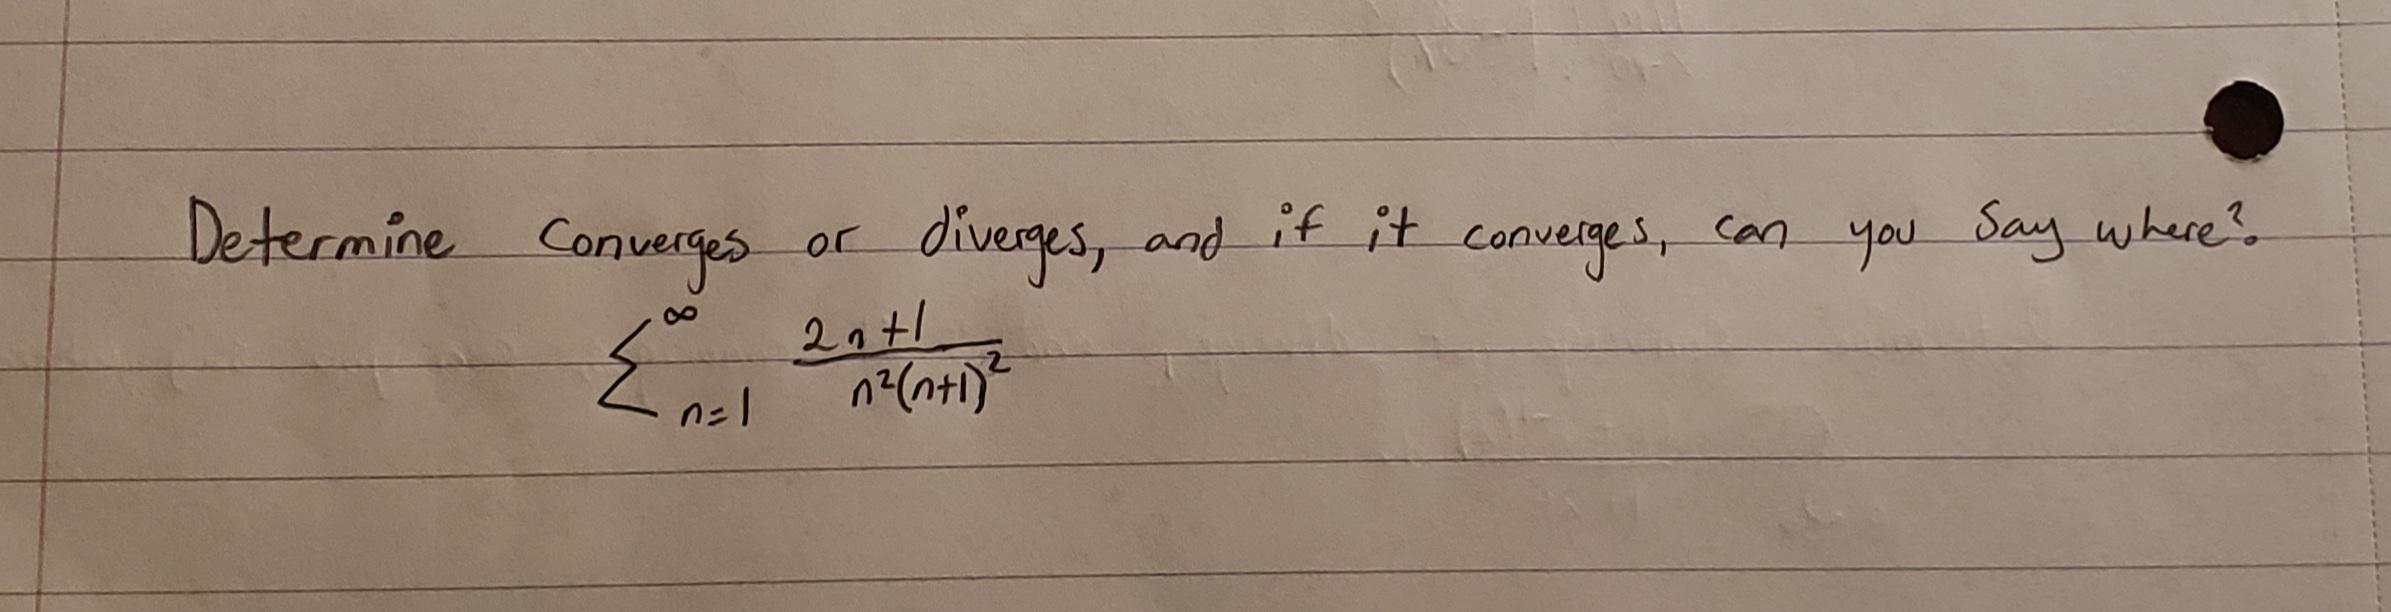 Determine converges or diverges, and if it converges, can you say where?
∑_{n=1}^{∞} \frac{2n+1}{n²(n+1)²}